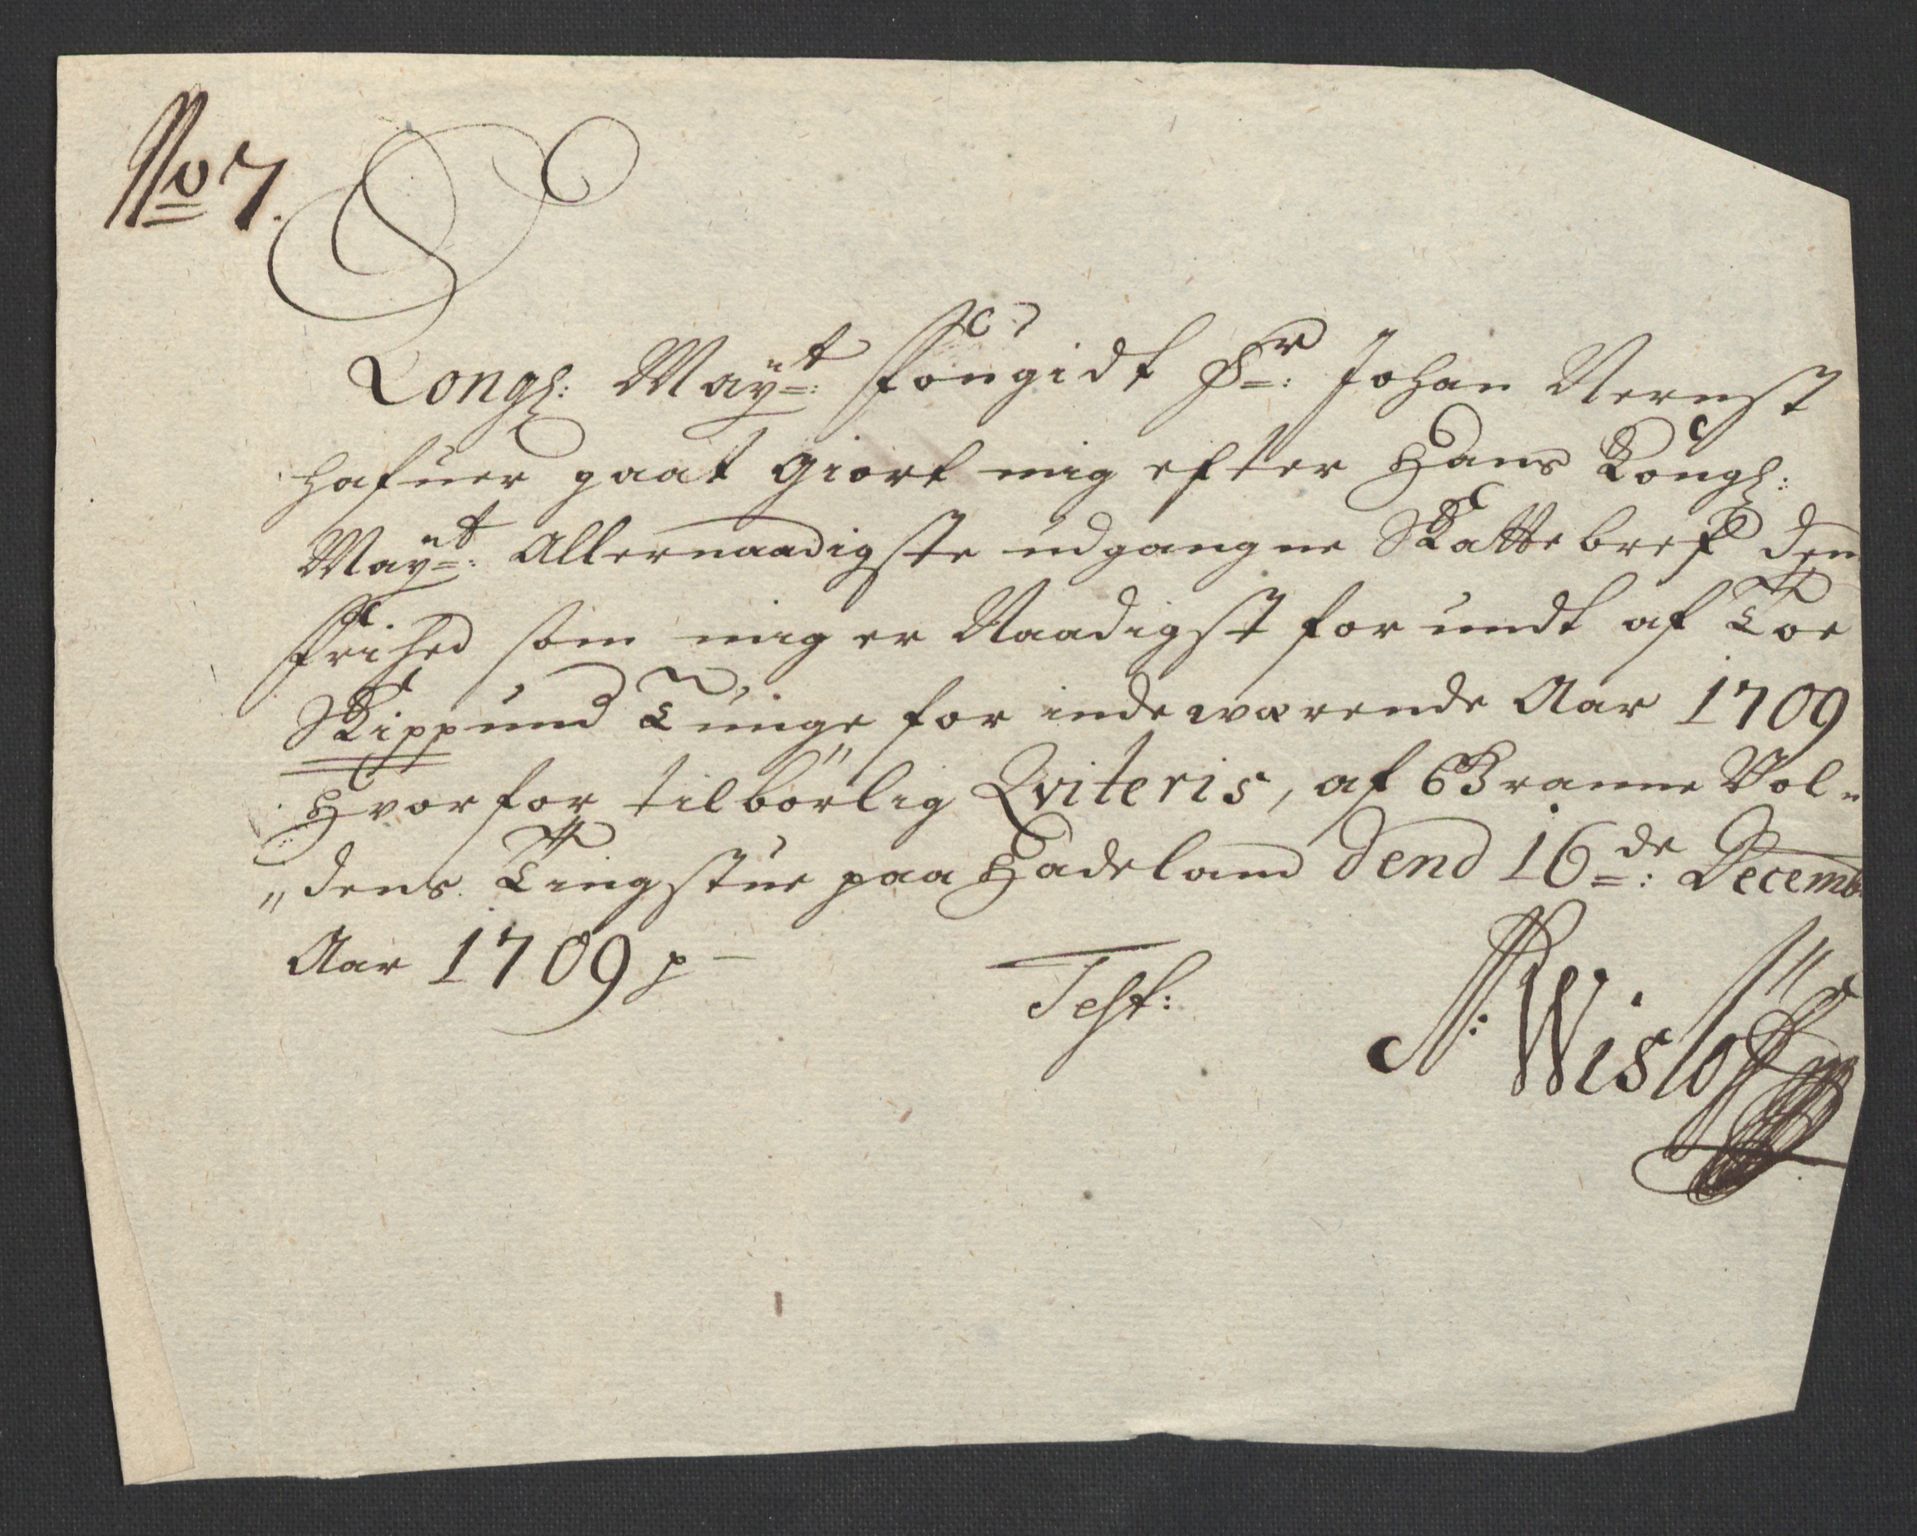 No 7.
Kongl: Mayt: fougidt Hr: Johan Nernst
hafuer paat giort mig efter Hans Kongl:
Mayt: Allernaadigste udgangne Skattebref den
frihed som mig er Naadigst forundt af Toe
Skippund Tunge for indeværende Aar 1709
Hvorfor tilbörlig Qviteris, af Granne Vol-
dens Tingstue paa Hadeland dend 16de: Decemb
Aar 1709 p
Test:
N: Wisløff